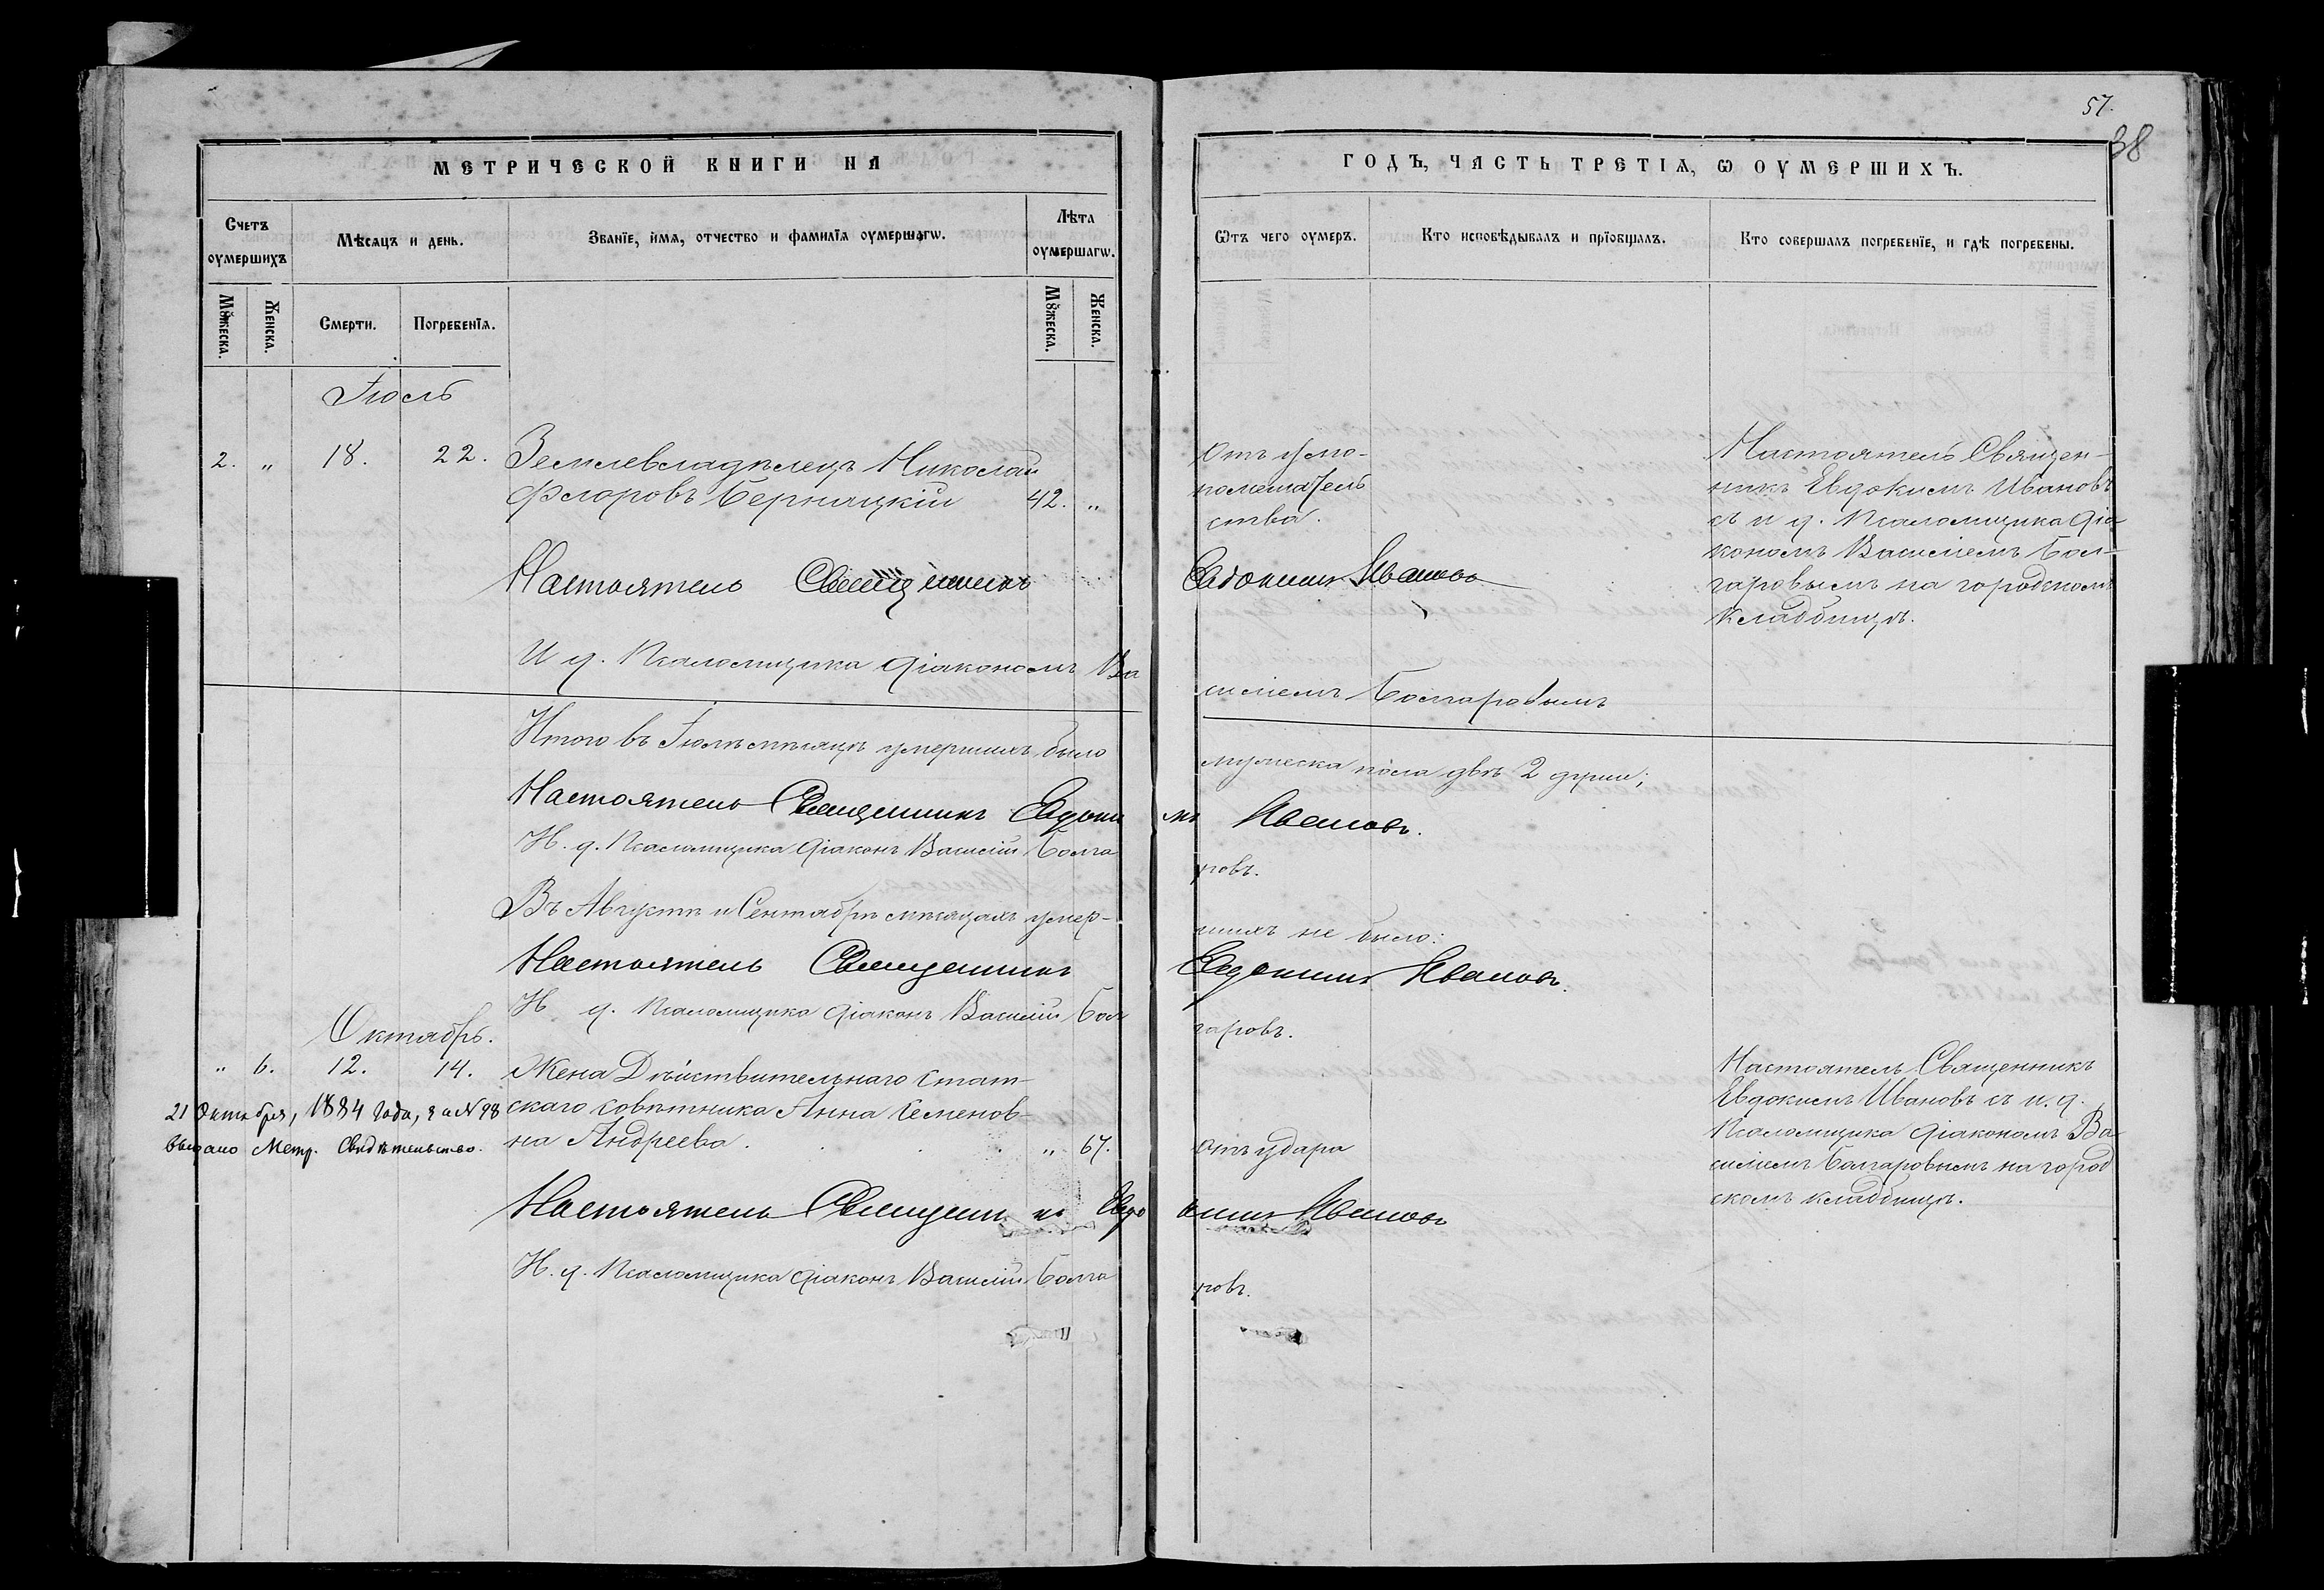 57.
38
МЕТРИЧЕСКОЙ КНИГИ НА
ГОДЪ, ЧАСТЬ ТРЕТІѦ, Ѡ ОУМЕРШИХЪ.
Счетъ оумершихъ
Мѣсяцъ и день.
Званїе, имѧ, отчество и фамилїѧ оумершагѡ.
Лѣта оумершагѡ.
Мꙋжеска. Женска.
Смерти. Погребенїѧ.
Мꙋжеска. Женска.
Ѿтъ чего оумеръ.
Кто исповѣдывалъ и прїобщалъ.
Кто совершалъ погребенїе, и гдѣ погребены.
Іюль
2. „ 18. 22. Землевладѣлецъ Николай
Флоровъ Берницкій 42. „
Отъ умо-
помешатель
ства.
Настоятель Священ-
никъ Евдокимъ Ивановъ
съ и д. Псаломщика діа
кономъ Василіемъ Бол-
гаровымъ на городскомъ
кладбищѣ.
Настоятель Священникъ Евдокимъ Ивановъ
И д. Псаломщика діакономъ Ва
силіемъ Болгаровымъ
Итого въ Іюлѣ мѣсяцѣ умершихъ было
мужеска пола двѣ 2 души;
Настоятель Священникъ Евдоки
мъ Ивановъ.
И. д. Псаломщика діаконъ Василій Болга
ровъ.
Въ Августѣ и Сентябрѣ мѣсяцахъ умер-
шихъ не было:
Настоятель Священникъ Евдокимъ Ивановъ.
И д. Псаломщика діаконъ Василій Бол
гаровъ.
Октябрь.
„ 6. 12. 14. Жена Дѣйствительнаго Стат-
скаго совѣтника Анна Семенов-
на Андреева. „ 67.
21 Октября, 1884 года, за № 98
выдано Метр. Свидѣтельство.
отъ удара
Настоятель Священникъ
Евдокимъ Ивановъ съ и. д.
Псаломщика діакономъ Ва
силіемъ Болгаровымъ на город
скомъ кладбищѣ.
Настоятель Священникъ Евдо
кимъ Ивановъ
И. д. Псаломщика діаконъ Василій Болга
ровъ.